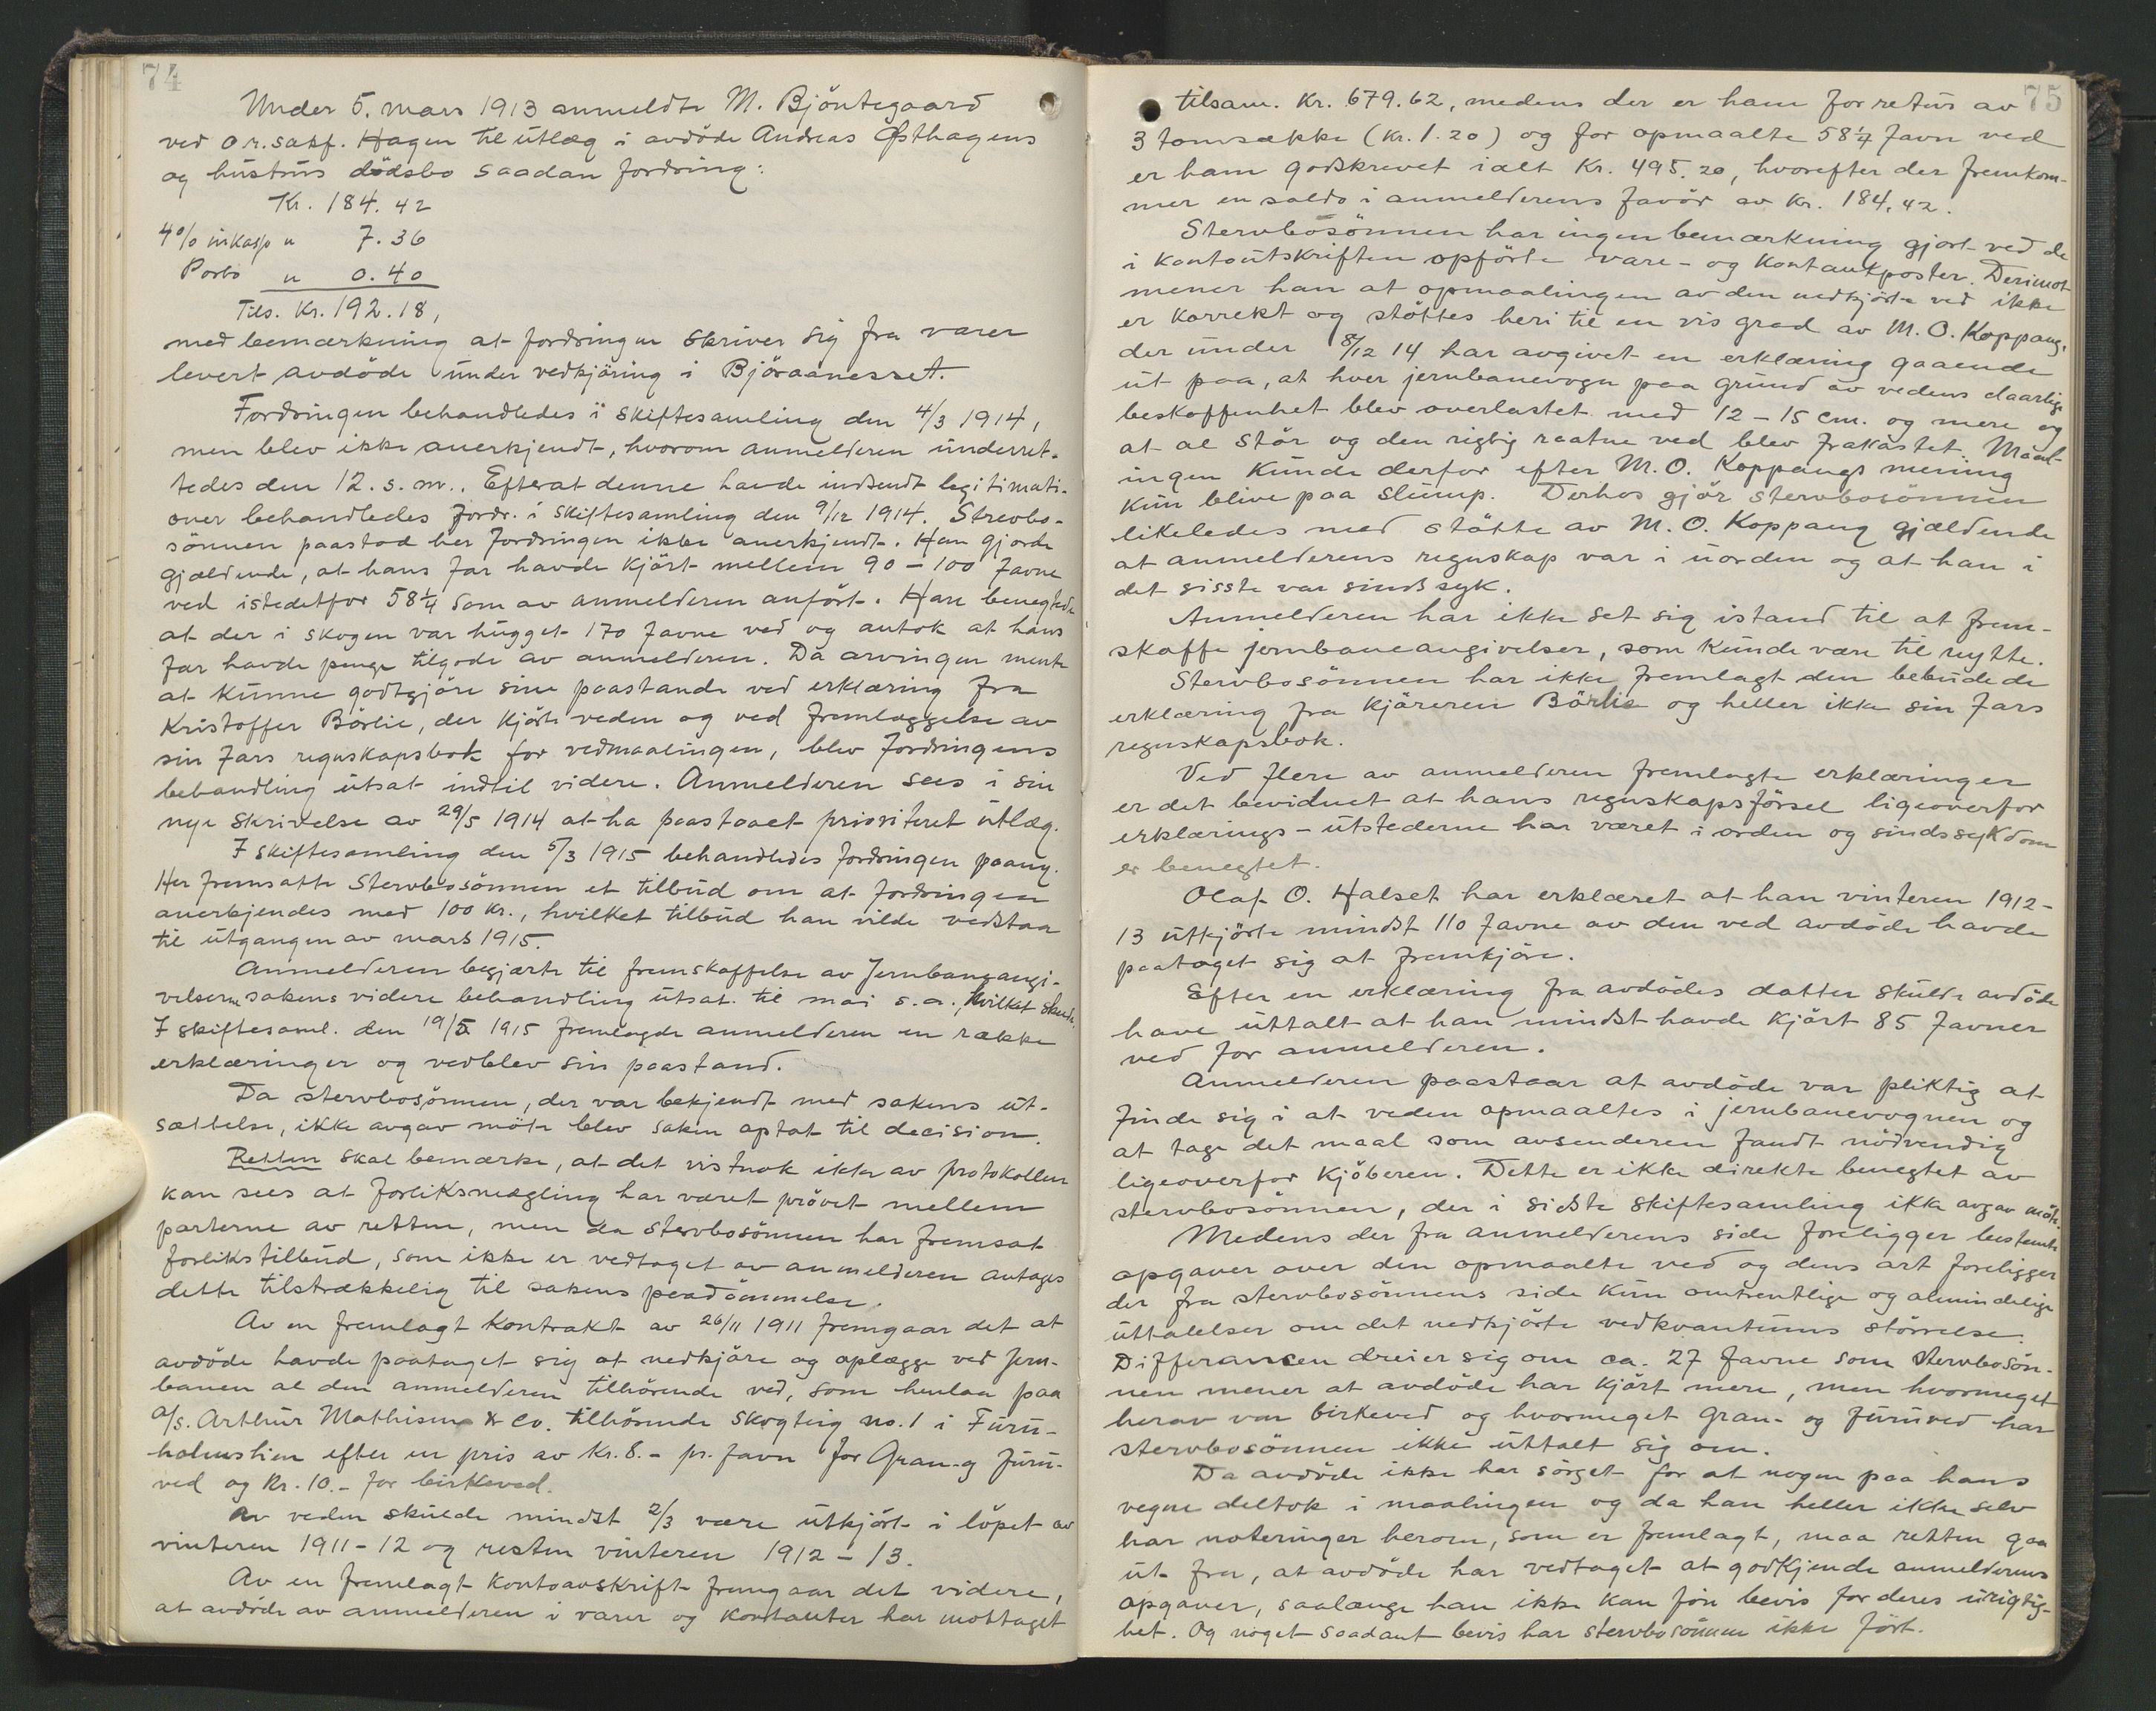 74
Under 5. mars 1913 anmeldte M. Bjöntegaard
ved o.r.sakf. Hagen til utlæg i avdöde Andreas Østhagens
og hustrus dödsbo saadan fordring:
Kr. 184.42
4% inkasso " 7.36
Porto " 0.40
Tils. Kr. 192.18,
med bemærkning at fordringen skriver sig fra varer
levert avdöde under vedkjöring i Björaanesset.
Fordringen behandledes i skiftesamling den 4/3 1914,
men blev ikke anerkjendt, hvorom anmelderen underret-
tedes den 12. s.m.. Efterat denne havde indsendt legitimati-
oner behandledes fordr. i skiftesamling den 9/12 1914. Strevbo-
sönnen paastod her fordringen ikke anerkjendt. Han gjorde
gjældende, at hans far havde kjört mellem 90-100 favne
ved istedetfor 58¼ som av anmelderen anfört. Han benegtede
at der i skogen var hugget 170 favne ved og antok at hans
far havde penge tilgode av anmelderen. Da arvingen mente
at kunne godtgjöre sine paastande ved erklæring fra
Kristoffer Börlie, der kjörte veden og ved fremlæggelse av
sin fars regnskapsbok for vedmaalingen, blev fordringens
behandling utsat indtil videre. Anmelderen sees i sin
nye skrivelse av 29/5 1914 at ha paastaaet prioritert utlæg.
I skiftesamling den 5/3 1915 behandledes fordringen paany.
Her fremsatte Stervbosönnen et tilbud om at fordringen
anerkjendes med 100 kr., hvilket tilbud han vilde vedstaa
til utgangen av mars 1915.
Anmelderen begjærte til fremskaffelse av Jernbaneangi-
velserne sakens videre behandling utsat til mai s.a., hvilket skede.
I skiftesaml. den 19/5 1915 fremlagde anmelderen en række
erklæringer og vedblev sin paastand.
Da stervbosönnen, der var bekjendt med sakens ut-
sættelse, ikke avgav möte blev saken optat til decision.
Retten skal bemærke, at det vistnok ikke av protokollen
kan sees at forliksmægling har været prövet mellem
parterne av retten, men da stervbosönnen har fremsat
forlikstilbud, som ikke er vedtaget av anmelderen antages
dette tilstrækkelig til sakens paadömmelse.
Av en fremlagt kontrakt av 26/11 1911 fremgaar det at
avdöde havde paataget sig at nedkjöre og oplægge ved Jern-
banen al den anmelderen tilhörende ved, som henlaa paa
a/s. Arthur Mathisen & Co. tilhörende skogteig no. 1 i Furu-
holmslien efter en pris av kr. 8.- pr. favn for Gran- og furu-
ved og kr. 10.- for birkeved.
Av veden skulde mindst 2/3 være utkjört i löpet av
vinteren 1911-12 og resten vinteren 1912-13.
Av en fremlagt kontoavskrift fremgaar det videre,
at avdöde av anmelderen i varer og kontanter har mottaget
75
tilsam. kr. 679.62, medens der er ham for retur av
3 tomsække (kr. 1.20) og for opmaalte 58¼ favn ved
er ham godskrevet ialt kr. 495.20, hvorefter der fremkom-
mer en saldo i anmelderens favör av kr. 184.42.
Stervbosönnen har ingen bemærkning gjort ved de
i kontoutskriften opförte vare- og kontantposter. Derimot
mener han at opmaalingen av den nedkjörte ved ikke
er korrekt og stöttes heri til en vis grad av M.O. Koppang,
der under 8/12 14 har avgivet en erklæring gaaende
ut paa, at hver jernbanevogn paa grund av vedens daarlige
beskaffenhet blev overlastet med 12-15 cm. og mere og
at al stör og den rigtig raatne ved blev frakastet. Maal-
ingen kunde derfor efter M.O. Koppangs mening
kun blive paa slump. Derhos gjör stervbosönnen
likeledes med stötte av M.O. Koppang gjældende
at anmelderens regnskap var i uorden og at han i
det sisste var sindssyk.
Anmelderen har ikke set sig istand til at frem-
skaffe jernbaneangivelser, som kunde være til nytte.
Stervbosönnen har ikke fremlagt den bebudede
erklæring fra kjöreren Börlie og heller ikke sin fars
regnskapsbok.
Ved flere av anmelderen fremlagte erklæringer
er det bevidnet at hans regnskapsförsel ligeoverfor
erklærings-utstederne har været i orden og sindssykdom
er benegtet.
Olaf O. Halset har erklæret at han vinteren 1912-
13 utkjörte mindst 110 favne av den ved avdöde havde
paataget sig at fremkjöre.
Efter en erklæring fra avdödes datter skulde avdöde
have uttalt at han mindst havde kjört 85 favner
ved for anmelderen.
Anmelderen paastaar at avdöde var pliktig at
finde sig i at veden opmaaltes i jernbanevognen og
at tage det maal som avsenderen fandt nödvendig
ligeoverfor kjöberen. Dette er ikke direkte benegtet av
stervbosönnen, der i sidste skiftesamling ikke avgav möte.
Medens der fra anmelderens side foreligger bestemte
opgaver over den opmaalte ved og dens art foreligger
der fra stervbosönnens side kun omtrentlige og almindelige
uttalelser om det nedkjörte vedkvantums störrelse.
Differansen dreier sig om ca. 27 favne som stervbosön-
nen mener at avdöde har kjört mere, men hvormeget
herav var birkeved og hvormeget gran- og furuved har
stervbosönnen ikke uttalt sig om.
Da avdöde ikke har sörget for at nogen paa hans
vegne deltok i maalingen og da han heller ikke selv
har noteringer herom, som er fremlagt, maa retten gaa
ut fra, at avdöde har vedtaget at godkjende anmelderens
opgaver, saalænge han ikke kan före bevis for deres urigtig-
het. Og noget saadant bevis har stervbosönnen ikke fört.